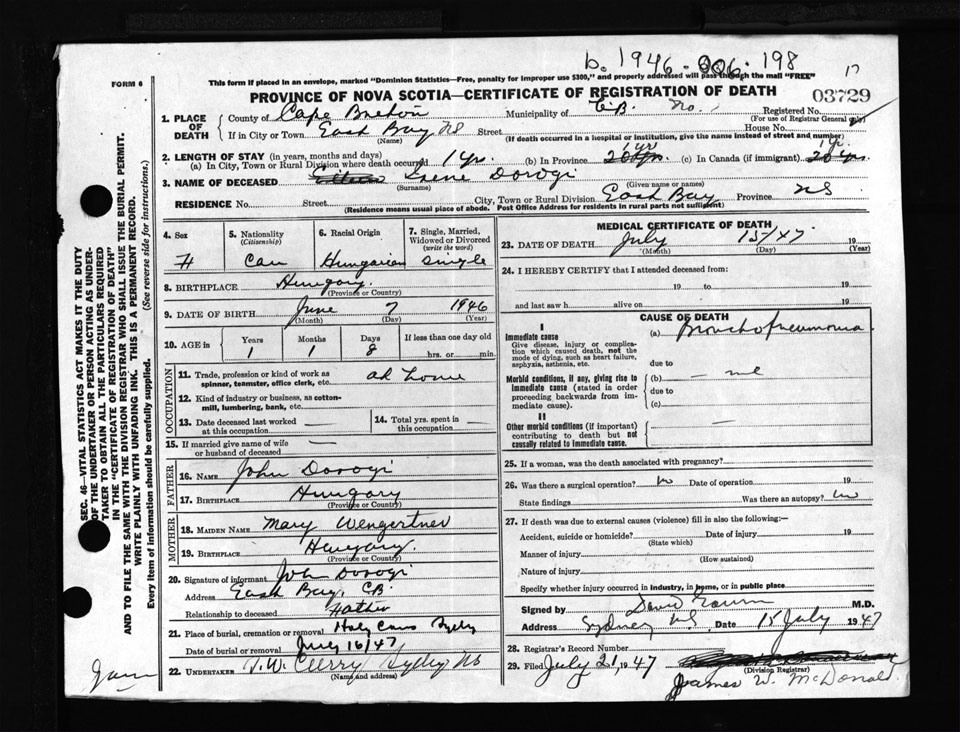 b. 1946. 006. 198
FORM 6
This form if placed in an envelope, marked "Dominion Statistics—Free, penalty for improper use $300," and properly addressed will pass through the mail "FREE"
PROVINCE OF NOVA SCOTIA—CERTIFICATE OF REGISTRATION OF DEATH
03729
1. PLACE OF DEATH
County of Cape Breton Municipality of C.B. No. Registered No.
(For use of Registrar General only)
If in City or Town East Bay NS Street House No.
(Name) (If death occurred in a hospital or institution, give the name instead of street and number)
2. LENGTH OF STAY (in years, months and days)
(a) In City, Town or Rural Division where death occurred 1 yr. (b) In Province 1 yr (c) In Canada (if immigrant) 1 yr.
3. NAME OF DECEASED Eileen Irene Dorogi
(Surname) (Given name or names)
RESIDENCE No. Street City, Town or Rural Division East Bay Province NS
(Residence means usual place of abode. Post Office Address for residents in rural parts not sufficient)
SEC. 46—VITAL STATISTICS ACT MAKES IT THE DUTY
OF THE UNDERTAKER OR PERSON ACTING AS UNDER-
TAKER TO OBTAIN ALL THE PARTICULARS REQUIRED
IN THE "CERTIFICATE OF REGISTRATION OF DEATH"
AND TO FILE THE SAME WITH THE DIVISION REGISTRAR WHO SHALL ISSUE THE BURIAL PERMIT.
WRITE PLAINLY WITH UNFADING INK. THIS IS A PERMANENT RECORD.
Every item of information should be carefully supplied. (See reverse side for instructions.)
4. Sex 5. Nationality (Citizenship) 6. Racial Origin 7. Single, Married, Widowed or Divorced (write the word)
Can Hungarian Single
8. BIRTHPLACE Hungary
(Province or Country)
9. DATE OF BIRTH June 7 1946
(Month) (Day) (Year)
10. AGE in Years Months Days If less than one day old
1 1 8 hrs. or min.
OCCUPATION
11. Trade, profession or kind of work as spinner, teamster, office clerk, etc. at home
12. Kind of industry or business, as cotton-mill, lumbering, bank, etc.
13. Date deceased last worked at this occupation —
14. Total yrs. spent in this occupation —
15. If married give name of wife or husband of deceased —
FATHER
16. NAME John Dorogi
17. BIRTHPLACE Hungary
(Province or Country)
MOTHER
18. MAIDEN NAME Mary Wengertner
19. BIRTHPLACE Hungary.
(Province or Country)
20. Signature of informant John Dorogi
Address East Bay, CB
Relationship to deceased Father
21. Place of burial, cremation or removal Holy Cross Sydney
Date of burial or removal July 16/47
22. UNDERTAKER Sydney NS
(Name and address)
MEDICAL CERTIFICATE OF DEATH
23. DATE OF DEATH July 15/47 19
(Month) (Day) (Year)
24. I HEREBY CERTIFY that I attended deceased from:
19 to 19
and last saw h alive on 19
CAUSE OF DEATH
I
Immediate cause (a) Bronchopneumonia
Give disease, injury or complication which caused death, not the mode of dying, such as heart failure, asphyxia, asthenia, etc.
due to
Morbid conditions, if any, giving rise to immediate cause (stated in order proceeding backwards from immediate cause). (b)
due to
(c)
II
Other morbid conditions (if important) contributing to death but not causally related to immediate cause. —
25. If a woman, was the death associated with pregnancy?
26. Was there a surgical operation? no Date of operation 19
State findings Was there an autopsy? no
27. If death was due to external causes (violence) fill in also the following:—
Accident, suicide or homicide? Date of injury 19
(State which)
Manner of injury
(How sustained)
Nature of injury
Specify whether injury occurred in industry, in home, or in public place
Signed by David M.D.
Address Sydney NS Date 15 July 1947
28. Registrar's Record Number
29. Filed July 21 1947
(Division Registrar)
James W. McDonald.